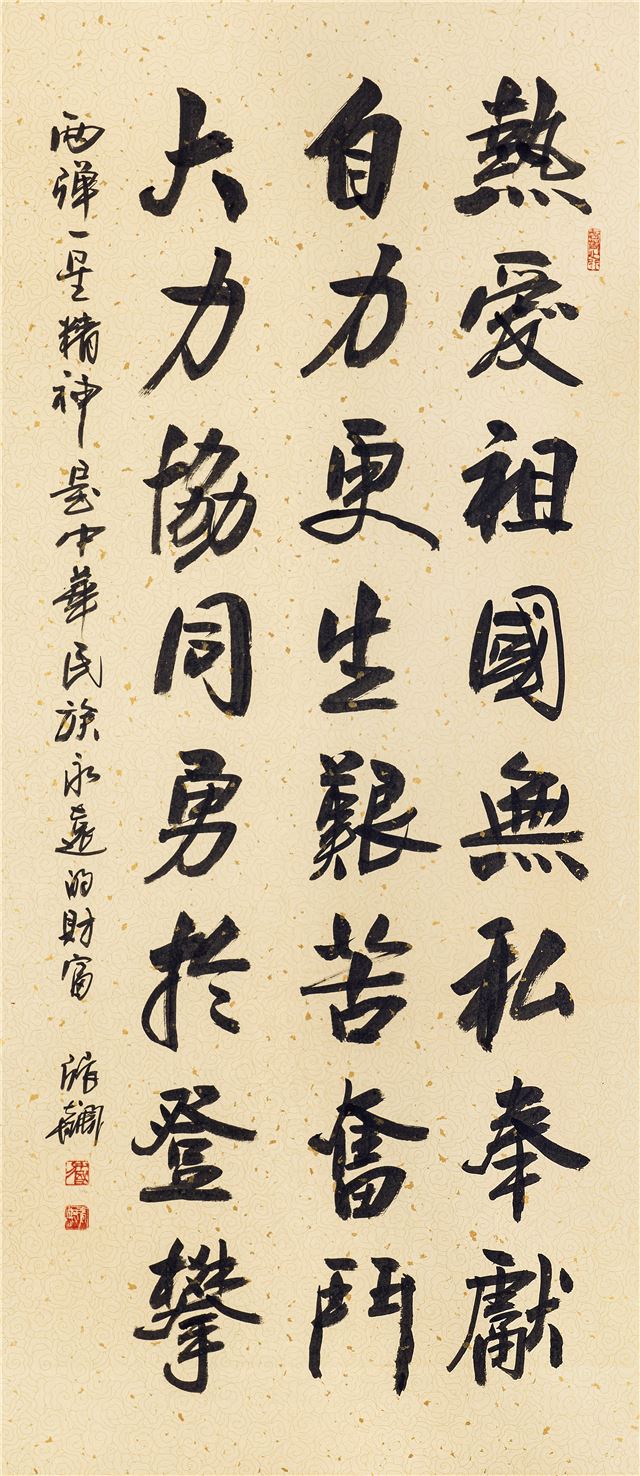 熱愛祖國無私奉獻
自力更生艱苦奮鬥
大力協同勇於登攀
两弹一星精神是中華民族永遠的財富